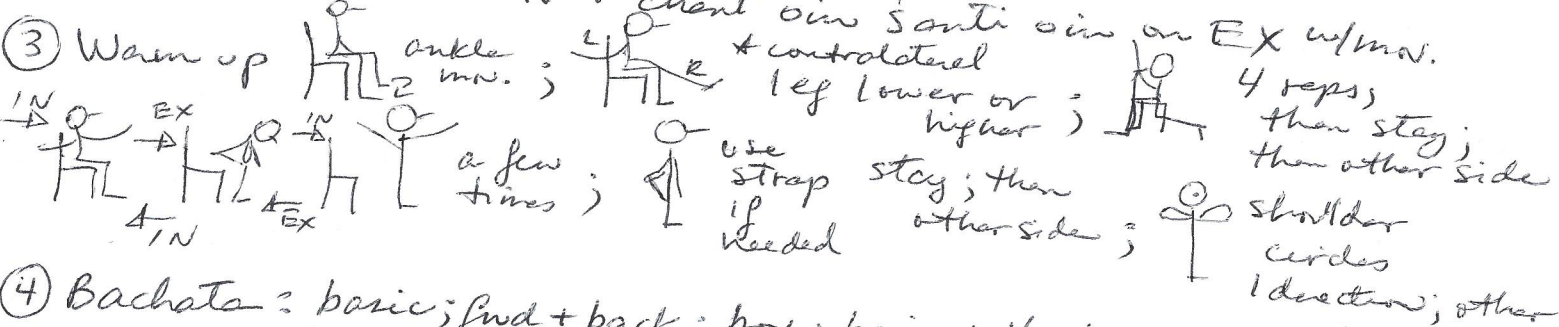 chant om śanti om on EX w/mv.
③ Warm up ankle mv. ; L R * contralateral leg lower or higher ; 4 reps; then stay; then other side
IN EX IN a few times ; use strap if needed stay; then other side ; shoulder circles 1 direction; other
IN EX
④ Bachata: basic; fwd + back